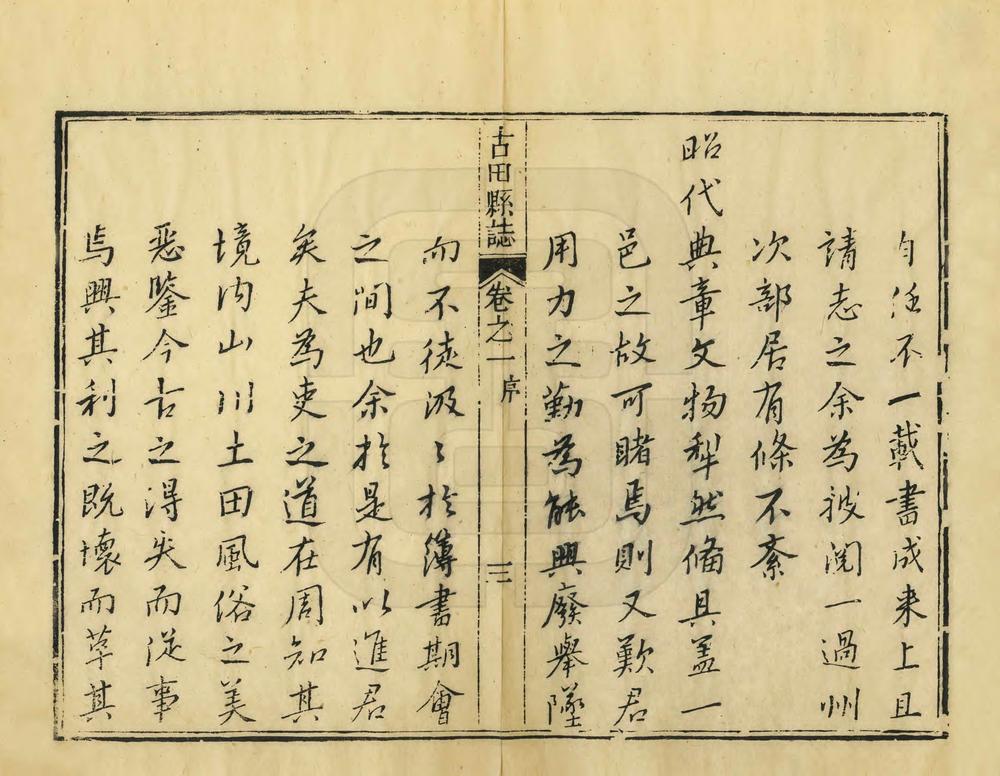 自任不一載書成來上且
請志之余為披閱一過州
次部居有條不紊
昭代典章文物犁然備具盖一
邑之故可睹焉則又歎君
用力之勤為能興廢舉墜
古田縣誌 卷之一 序 三
而不徒汲〻於簿書期會
之間也余於是有以進君
矣夫為吏之道在周知其
境内山川土田風俗之美
惡鑒今古之得失而從事
焉興其利之既壞而革其